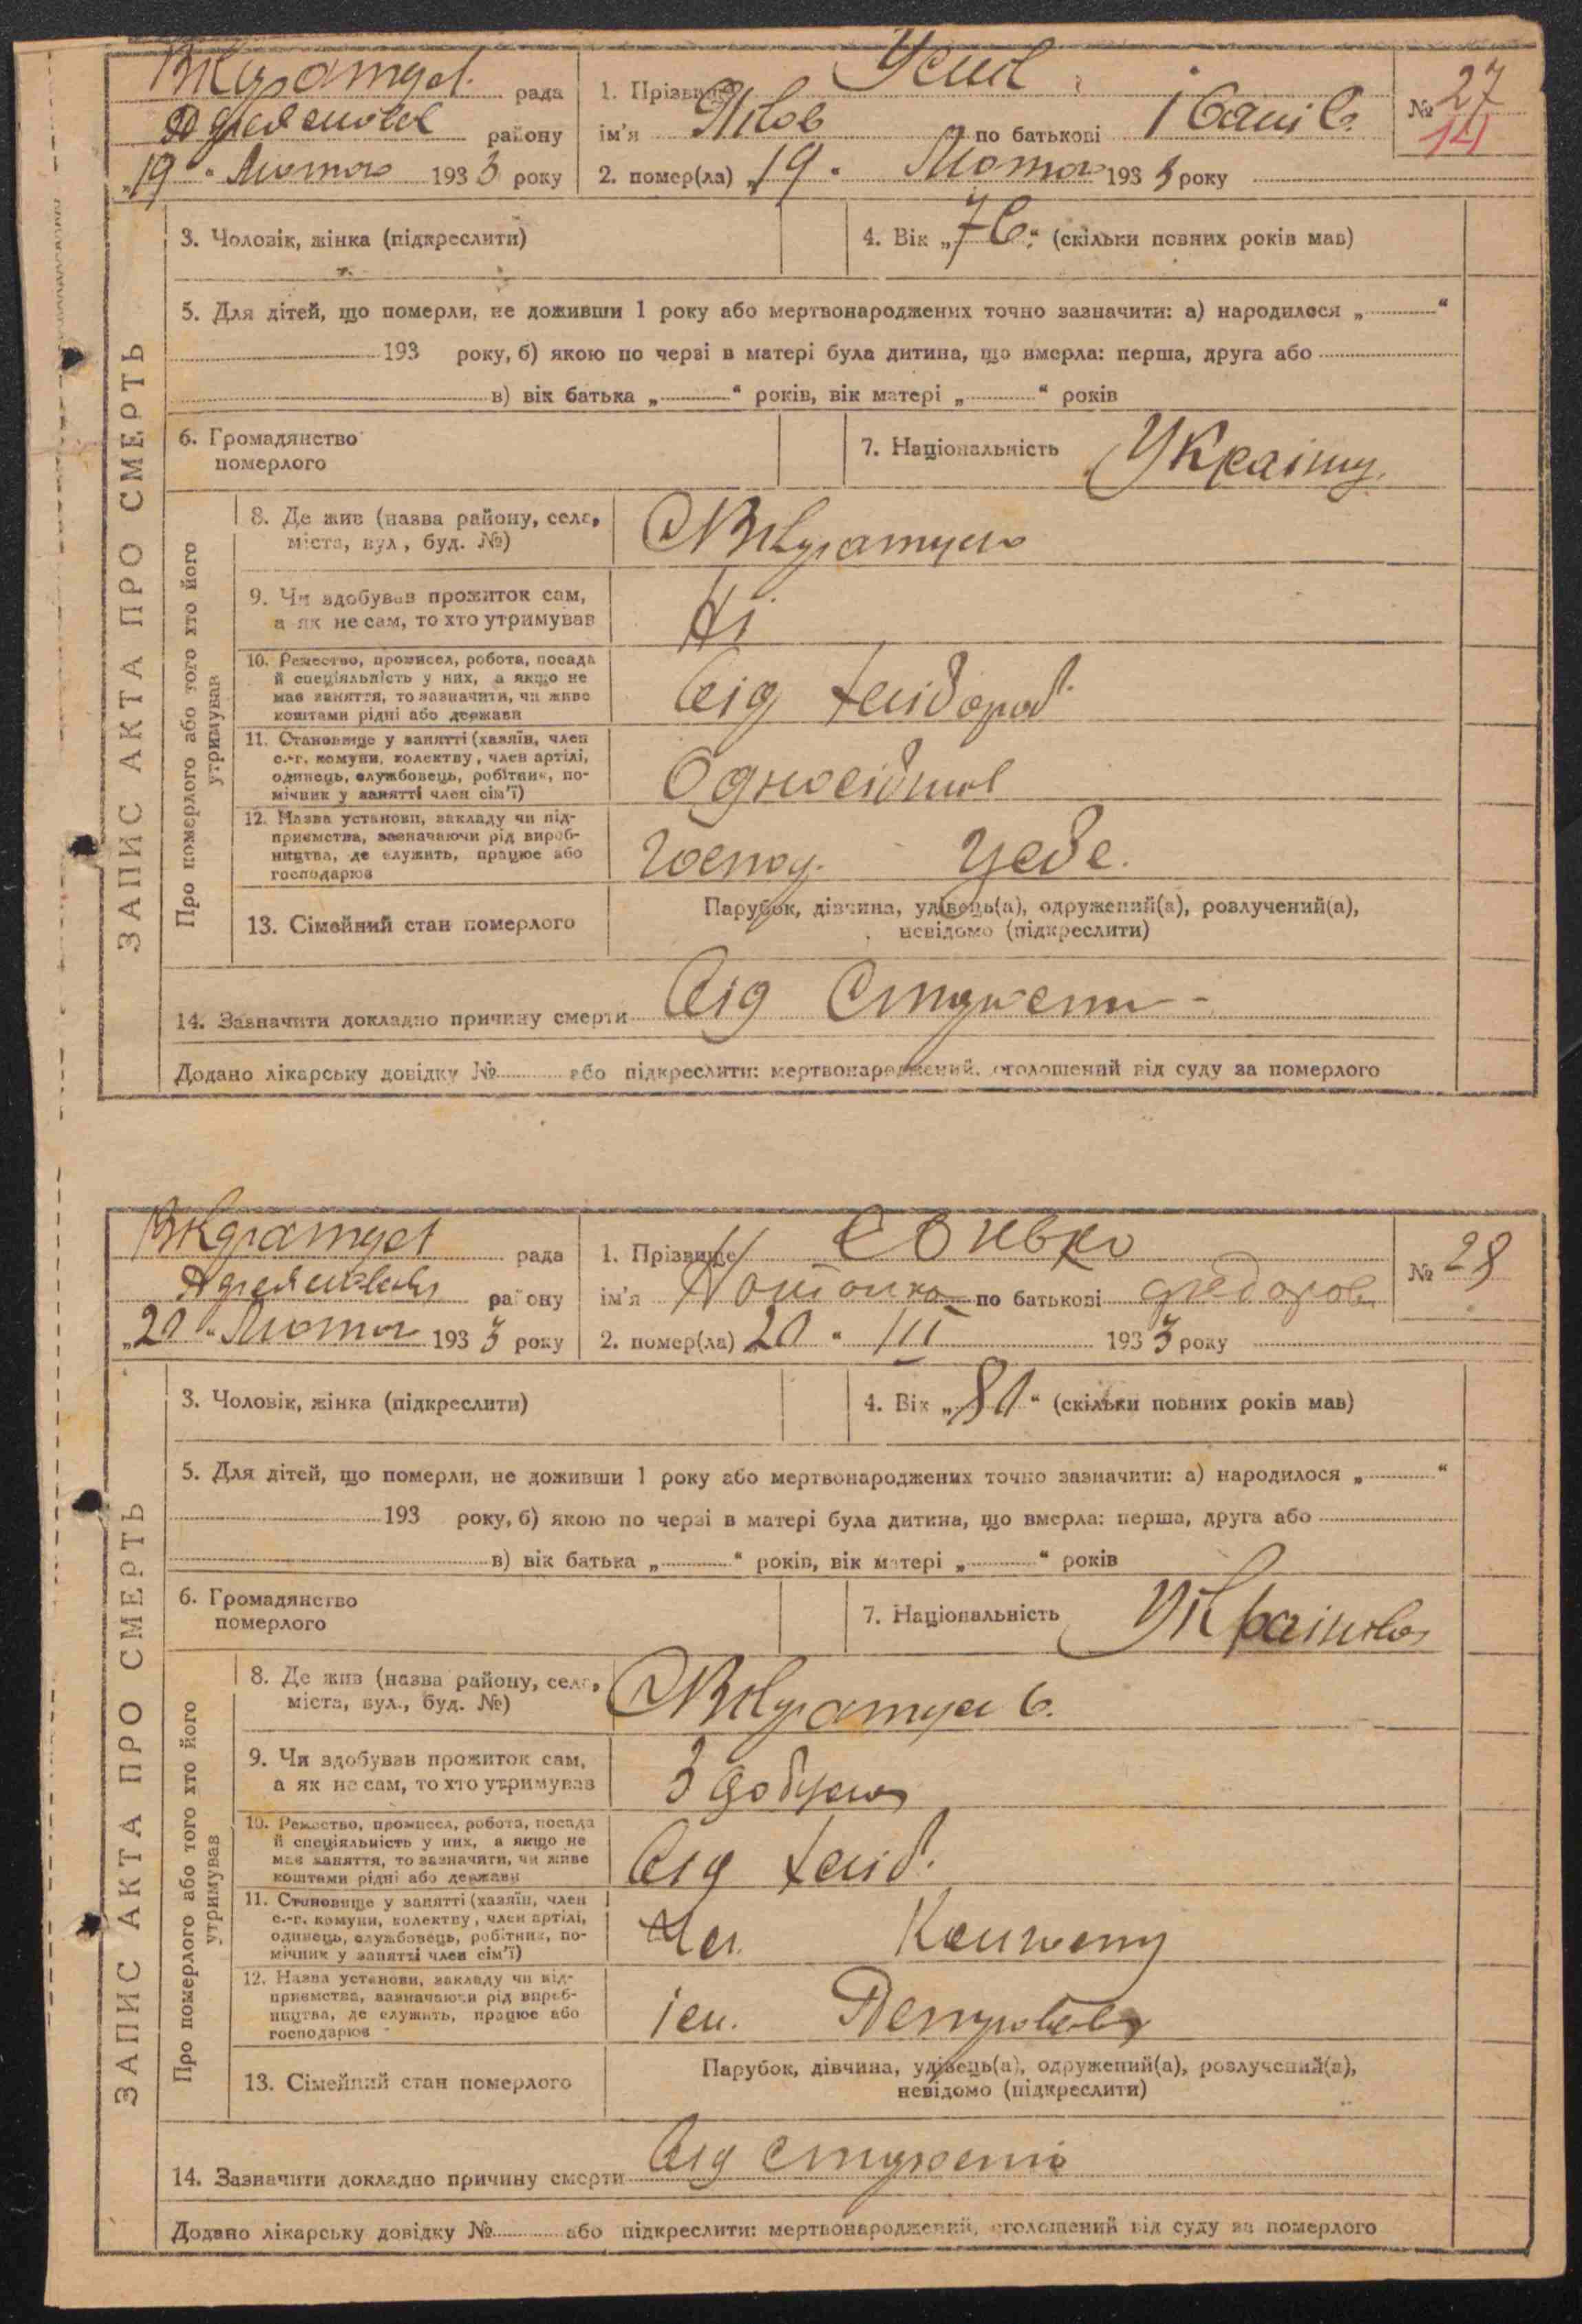 рада
району
"19" Лютого 1933 року
1. Прізвище Усик
ім'я по батькові Іванів.
2. помер(ла) "19" Лютого 1933 року
№ 27
14
ЗАПИС АКТА ПРО СМЕРТЬ
3. Чоловік, жінка (підкреслити)
4. Вік „76." (скільки повних років мав)
5. Для дітей, що померли, не доживши 1 року або мертвонароджених точно зазначити: а) народилося „ “
193 року, б) якою по черзі в матері була дитина, що вмерла: перша, друга або
в) вік батька „ “ років, вік матері „ “ років
6. Громадянство
померлого
7. Національність Україну.
Про померлого або того хто його
утримував
8. Де жив (назва району, села,
міста, вул., буд. №)
9. Чи здобував прожиток сам,
а як не сам, то хто утримував
Ні
10. Ремество, промисел, робота, посада
й спеціяльність у них, а якщо не
мав заняття, то зазначити, чи живе
коштами рідні або держави
від
11. Становище у занятті (хазяїн, член
с.-г. комуни, колективу, член артілі,
одинець, службовець, робітник, по-
мічник у занятті член сім'ї)
12. Назва установи, закладу чи під-
приємства, зазначаючи рід вироб-
ництва, де служить, працює або
господарює
Господ. у себе.
13. Сімейний стан померлого
Парубок, дівчина, удівець(а), одружений(а), розлучений(а),
невідомо (підкреслити)
14. Зазначити докладно причину смерти від
Додано лікарську довідку № або підкреслити: мертвонароджений, оголошений від суду за померлого
рада
району
"20" Лютого 1933 року
1. Прізвище
ім'я по батькові Федоров
2. помер(ла) 20 " III 1933 року
№ 28
ЗАПИС АКТА ПРО СМЕРТЬ
3. Чоловік, жінка (підкреслити)
4. Вік „80" (скільки повних років мав)
5. Для дітей, що померли, не доживши 1 року або мертвонароджених точно зазначити: а) народилося „ “
193 року, б) якою по черзі в матері була дитина, що вмерла: перша, друга або
в) вік батька „ “ років, вік матері „ “ років
6. Громадянство
померлого
7. Національність Українка
Про померлого або того хто його
утримував
8. Де жив (назва району, села,
міста, вул., буд. №)
9. Чи здобував прожиток сам,
а як не сам, то хто утримував
10. Ремество, промисел, робота, посада
й спеціяльність у них, а якщо не
мав заняття, то зазначити, чи живе
коштами рідні або держави
від
11. Становище у занятті (хазяїн, член
с.-г. комуни, колективу, член артілі,
одинець, службовець, робітник, по-
мічник у занятті член сім'ї)
Чл.
12. Назва установи, закладу чи під-
приємства, зазначаючи рід вироб-
ництва, де служить, працює або
господарює
ім. Петровськ
13. Сімейний стан померлого
Парубок, дівчина, удівець(а), одружений(а), розлучений(а),
невідомо (підкреслити)
14. Зазначити докладно причину смерти від
Додано лікарську довідку № або підкреслити: мертвонароджений, оголошений від суду за померлого